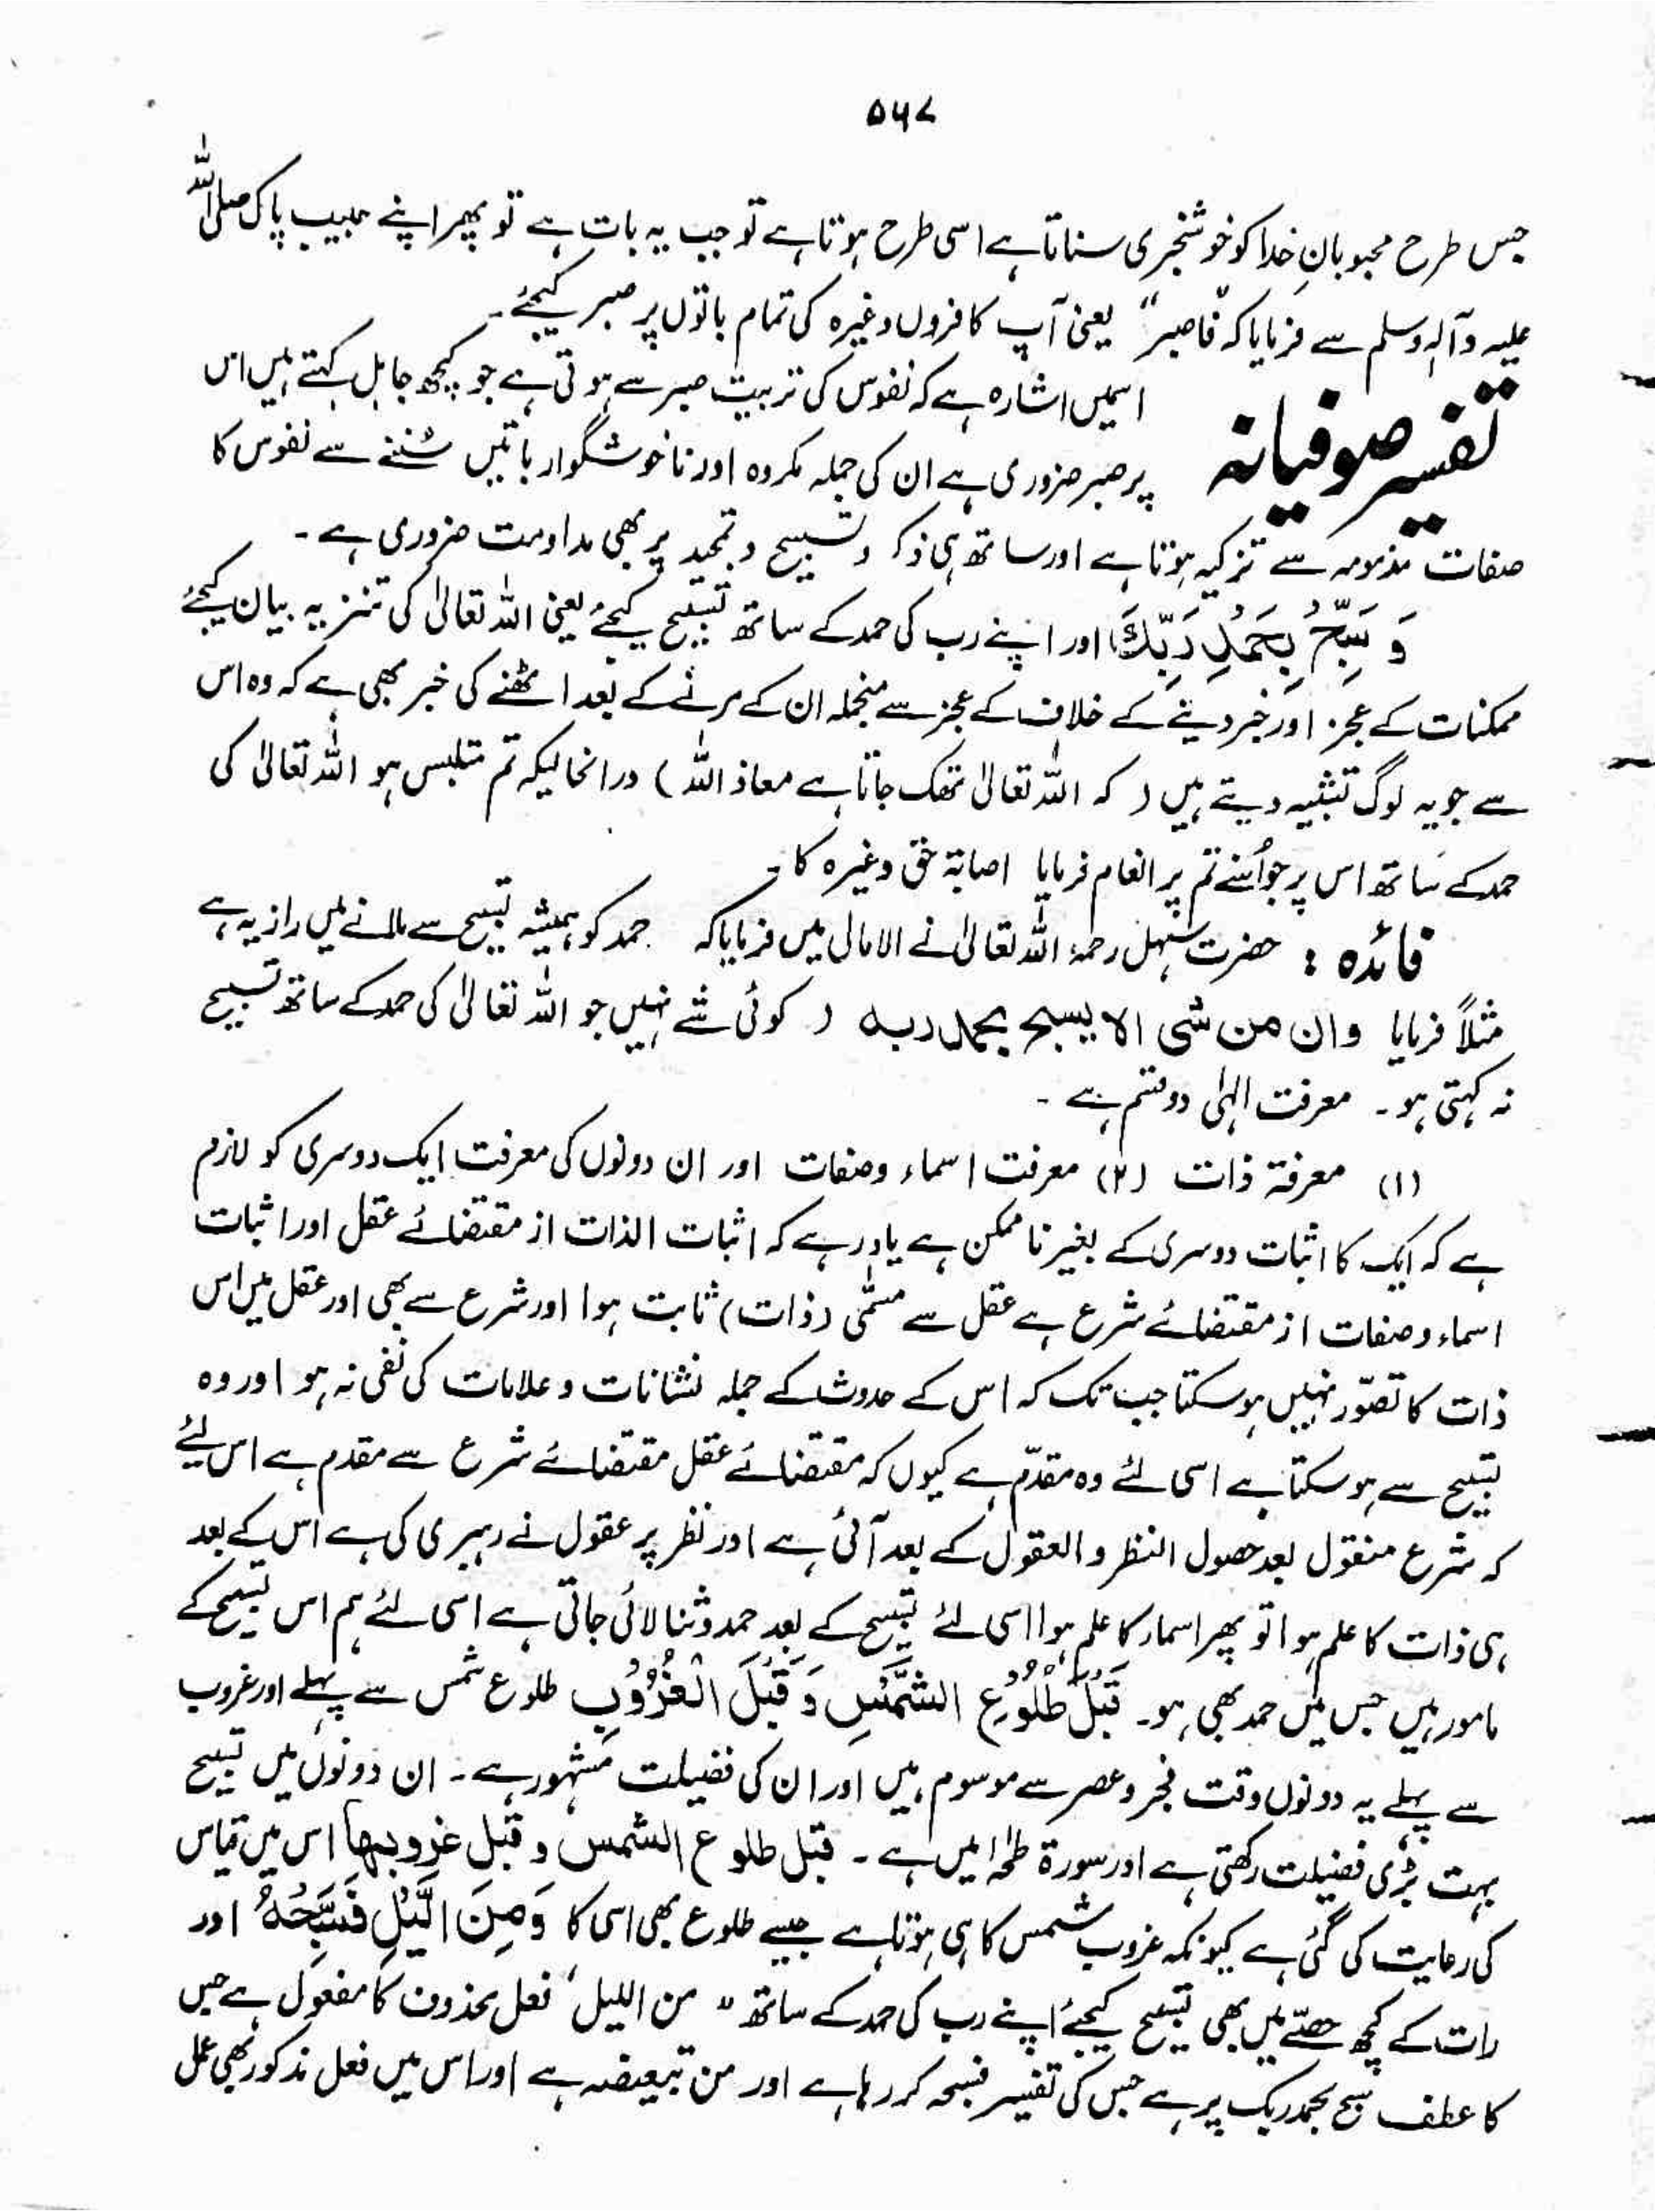 ۵۶۷
جس طرح محبوبانِ خدا کو خوشخبری سناتا ہے اسی طرح ہوتا ہے تو جب یہ بات ہے تو پھر اپنے حبیب پاک صلی اللہ
علیہ وآلہ وسلم سے فرمایا کہ "فاصبر" یعنی آپ کافروں وغیرہ کی تمام باتوں پر صبر کیجئے۔
تفسیر صوفیانہ
اسمیں اشارہ ہے کہ نفوس کی تربیت صبر سے ہوتی ہے جو کچھ جاہل کہتے ہیں اس
پر صبر ضروری ہے ان کی جملہ مکروہ اور ناخوشگوار باتیں سُننے سے نفوس کا
صفات مذمومہ سے تزکیہ ہوتا ہے اور ساتھ ہی ذکر و تسبیح و تمجید پر بھی مداومت ضروری ہے ۔
وَ سَبِّحْ بِحَمْدِ رَبِّكَ اور اپنے رب کی حمد کے ساتھ تسبیح کیجئے یعنی اللہ تعالیٰ کی تنزیہ بیان کیجئے
ممکنات کے عجز اور خبر دینے کے خلاف کے عجز سے منجملہ ان کے مرنے کے بعد اٹھنے کی خبر بھی ہے کہ وہ اس
سے جو یہ لوگ تشبیہ دیتے ہیں ( کہ اللہ تعالیٰ تھک جاتا ہے معاذ اللہ ) درانحالیکہ تم متلبس ہو اللہ تعالیٰ کی
حمد کے ساتھ اس پر جو اُسنے تم پر انعام فرمایا اصابۃ حق وغیرہ کا ۔
فائدہ : حضرت سہیل رحمۃ اللہ تعالیٰ نے الامالی میں فرمایا کہ حمد کو ہمیشہ تسبیح سے ملانے میں راز یہ ہے
مثلاً فرمایا وان من شی الا یسبح بحمد ربہ ( کوئی شے نہیں جو اللہ تعالیٰ کی حمد کے ساتھ تسبیح
نہ کہتی ہو ۔ معرفت الٰہی دو قسم ہے ۔
(۱) معرفۃ ذات (۲) معرفت اسماء وصفات اور ان دونوں کی معرفت ایک دوسری کو لازم
ہے کہ ایک کا اثبات دوسری کے بغیر ناممکن ہے یاد رہے کہ اثبات الذات از مقتضائے عقل اور اثبات
اسماء وصفات از مقتضائے شرع ہے عقل سے مسمّٰی (ذات) ثابت ہوا اور شرع سے بھی اور عقل میں اس
ذات کا تصوّر نہیں ہو سکتا جب تک کہ اس کے حدوث کے جملہ نشانات و علامات کی نفی نہ ہو اور وہ
تسبیح سے ہو سکتا ہے اسی لئے وہ مقدّم ہے کیوں کہ مقتضائے عقل مقتضائے شرع سے مقدم ہے اس لئے
کہ شرع منقول بعد حصول النظر و العقول کے بعد آئی ہے اور نظر پر عقول نے رہبری کی ہے اس کے بعد
ہی ذات کا علم ہوا تو پھر اسماء کا علم ہوا اسی لئے تسبیح کے بعد حمد و ثنا لائی جاتی ہے اسی لئے ہم اس تسبیح کے
مامور ہیں جس میں حمد بھی ہو ۔ قَبْلَ طُلُوْعِ الشَّمْسِ وَ قَبْلَ الْغُرُوْبِ طلوع شمس سے پہلے اور غروب
سے پہلے یہ دونوں وقت فجر و عصر سے موسوم ہیں اور ان کی فضیلت مشہور ہے ۔ ان دونوں میں تسبیح
بہت بڑی فضیلت رکھتی ہے اور سورۃ طٰہٰ میں ہے ۔ قبل طلوع الشمس و قبل غروبھا اس میں قیاس
کی رعایت کی گئی ہے کیونکہ غروب شمس کا ہی ہوتا ہے جیسے طلوع بھی اسی کا وَ مِنَ الَّیْلِ فَسَبِّحْهُ اور
رات کے کچھ حصّے میں بھی تسبیح کیجئے اپنے رب کی حمد کے ساتھ " من اللیل ' فعل محذوف کا مفعول ہے جس
کا عطف سبح بحمد ربک پر ہے جس کی تفسیر فسبحہ کر رہا ہے اور من تبعیضہ ہے اور اس میں فعل مذکور بھی عمل